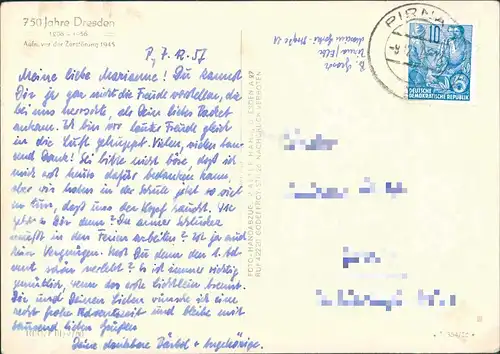 750 Jahre Dresden
1206 - 1956
Aufn. vor der Zerstörung 1945
P., 7. 12. 57
Meine liebe Marianne! Du kannst
Dir ja gar nicht die Freude vorstellen, die
bei uns herrschte, als Dein liebes Packet
ankam. Ich bin vor lauter Freude gleich
in die Luft gehuppt. Vielen, vielen tau-
send Dank! Sei bitte nicht böse, daß ich
mich erst heute dafür bedanken kann,
aber wir haben in der Schule jetzt so viel
zu tun, daß uns der Kopf raucht. Wie
geht es Dir denn? Du armer Schlucker
mußt in den Ferien arbeiten? Ist ja auch
kein Vergnügen. Hast Du denn den 1. Ad-
vent schön verlebt? Es ist immer richtig
gemütlich, wenn das erste Lichtlein brennt.
Dir und Deinen Lieben wünsche ich eine
recht frohe Adventszeit und bleibe mit
tausend lieben Grüßen
Deine dankbare Bärbel + Angehörige.
B.
Pirna/Elbe
Straße
PIRNA
10
DEUTSCHE
DEMOKRATISCHE REPUBLIK
FOTO-HANDABZUG
NACHDRUCK VERBOTEN